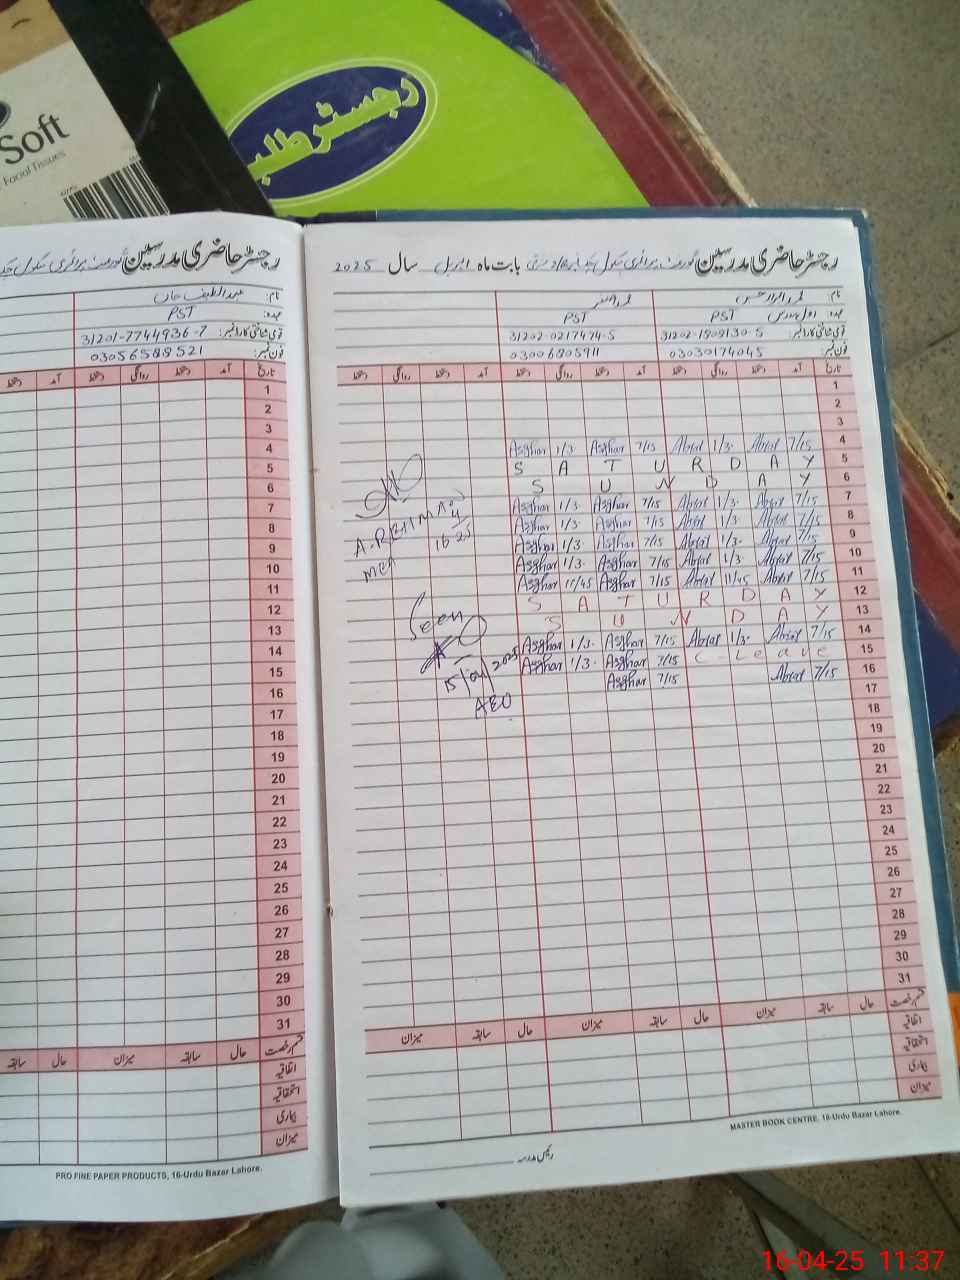 Soft
Facial Tissues
رجسٹر طلبہ
رجسٹر حاضری مدرسین گورنمنٹ پرائمری سکول
نام: عبدالطیف خان
عہدہ: PST
قومی شناختی کارڈ نمبر: 31201-7744936-7
فون نمبر: 03056588521
تاریخ آمد دستخط روانگی دستخط آمد دستخط
1
2
3
4
5
6
7
8
9
10
11
12
13
14
15
16
17
18
19
20
21
22
23
24
25
26
27
28
29
30
31
قسم رخصت حال سابقہ میزان حال سابقہ
اتفاقیہ
استحقاقیہ
بیماری
میزان
PRO FINE PAPER PRODUCTS, 16-Urdu Bazar Lahore.
رجسٹر حاضری مدرسین گورنمنٹ پرائمری سکول بابت ماہ اپریل سال 2025
نام:
عہدہ: PST PST
قومی شناختی کارڈ نمبر: 31202-1909130-5 31202-0217474-5
فون نمبر: 03030174045 03006805911
تاریخ آمد دستخط روانگی دستخط آمد دستخط روانگی دستخط آمد دستخط روانگی دستخط
1
2
3
Asghar 1/3. Asghar 7/15 Abrar 1/3. Abrar 7/15 4
S A T U R D A Y 5
S U N D A Y 6
Asghar 1/3. Asghar 7/15 Abrar 1/3. Abrar 7/15 7
Asghar 1/3. Asghar 7/15 Abrar 1/3. Abrar 7/15 8
Asghar 1/3. Asghar 7/15 Abrar 1/3. Abrar 7/15 9
Asghar 1/3. Asghar 7/15 Abrar 1/3. Abrar 7/15 10
Asghar 11/45 Asghar 7/15 Abrar 11/45 Abrar 7/15 11
S A T U R D A Y 12
S U N D A Y 13
Asghar 1/3. Asghar 7/15 Abrar 1/3. Abrar 7/15 14
Asghar 1/3. Asghar 7/15 C-Leave 15
Asghar 7/15 Abrar 7/15 16
17
18
19
20
21
22
23
24
25
26
27
28
29
30
31
A.R
16-4-25
Seen
15/04/2025
AEO
قسم رخصت حال سابقہ میزان حال سابقہ میزان حال سابقہ میزان
اتفاقیہ
استحقاقیہ
بیماری
میزان
MASTER BOOK CENTRE, 16-Urdu Bazar Lahore.
رئیس مدرسہ
16-04-25 11:37